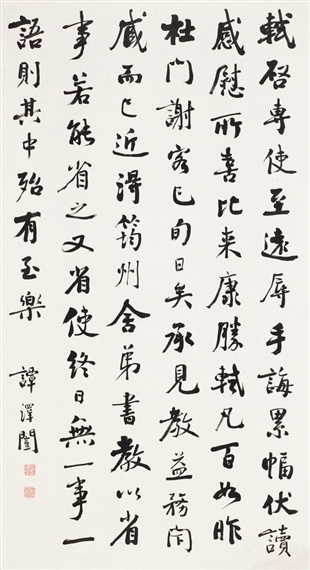 軾啓專使至遠辱手誨累幅伏讀
感慰所喜比来康勝軾凡百如昨
杜門謝客已旬日矣承見教益務閉
藏而已近得筠州舍弟書教以省
事若能省之又省使終日無一事一
語則其中殆有至樂
譚澤闓